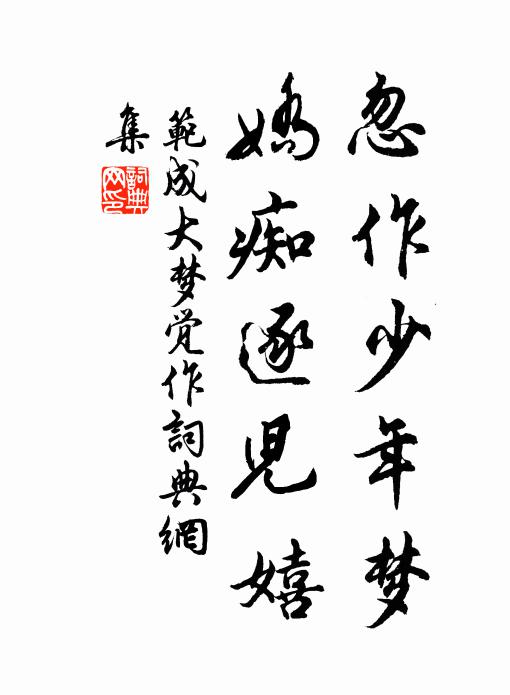 忽作少年梦
娇痴逐児嬉
範成大梦覚作詞典網
集
詞典
网印